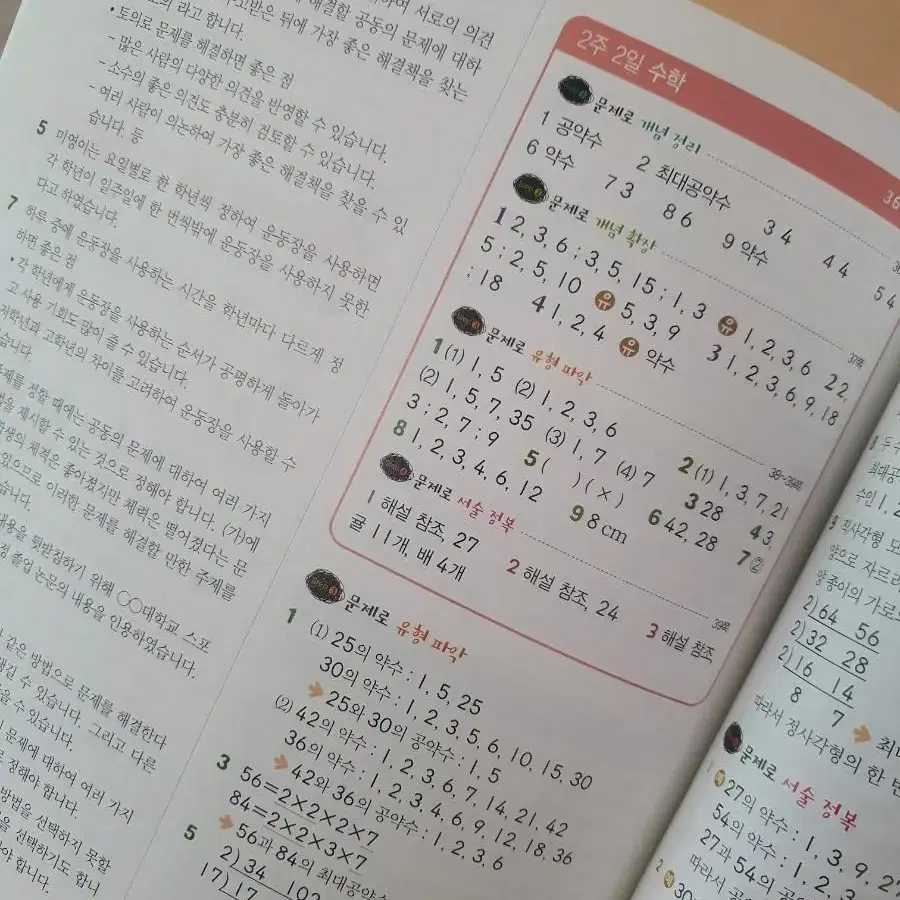 하여 서로의 의견
고받은 뒤에 가장 좋은 해결책을 찾는
의 라고 합니다.
• 토의로 문제를 해결하면 좋은 점
- 많은 사람의 다양한 의견을 반영할 수 있습니다.
- 소수의 좋은 의견도 충분히 검토할 수 있습니다.
- 여러 사람이 의논하여 가장 좋은 해결책을 찾을 수 있
습니다. 등
5 미영이는 요일별로 한 학년씩 정하여 운동장을 사용하면
각 학년이 일주일에 한 번씩밖에 운동장을 사용하지 못한
다고 하였습니다.
7 하루 중에 운동장을 사용하는 시간을 학년마다 다르게 정
하면 좋은 점
• 각 학년에게 운동장을 사용하는 순서가 공평하게 돌아가
고 사용 기회도 많이 줄 수 있습니다.
저학년과 고학년의 차이를 고려하여 운동장을 사용할 수
습니다.
제를 정할 때에는 공동의 문제에 대하여 여러 가지
을 제시할 수 있는 것으로 정해야 합니다. (가)에
학생의 체격은 좋아졌지만 체력은 떨어졌다는 문
있으므로 이러한 문제를 해결할 만한 주제를
습니다.
내용을 뒷받침하기 위해 ○○대학교 스포
졸업 논문의 내용을 인용하였습니다.
같은 방법으로 문제를 해결한다
생길 수 있습니다. 그리고 다른
을 수 있습니다.
문제에 대하여 여러 가지
로 정해야 합니다.
방법을 선택하지 못할
을 선택하기도 합니
야 합니다.
2주 2일 수학
36
문제로 개념 정리
1 공약수 2 최대공약수 3 4 4 4 5 4
6 약수 7 3 8 6 9 약수
문제로 개념 확장 37쪽
1 2, 3, 6 ; 3, 5, 15 ; 1, 3 유 1, 2, 3, 6 2 2,
5 ; 2, 5, 10 유 5, 3, 9 3 1, 2, 3, 6, 9, 18
; 18 4 1, 2, 4 유 약수
문제로 유형 파악 38~39쪽
1 (1) 1, 5 (2) 1, 2, 3, 6 2 (1) 1, 3, 7, 21
(2) 1, 5, 7, 35 (3) 1, 7 (4) 7 3 28 4 3,
3 ; 2, 7 ; 9 5 ( ) ( × ) 6 42, 28 7 ②
8 1, 2, 3, 4, 6, 12 9 8 cm
문제로 서술 정복 39쪽
1 해설 참조, 27 2 해설 참조, 24 3 해설 참조,
귤 11개, 배 4개
문제로 유형 파악
1 (1) 25의 약수 : 1, 5, 25
30의 약수 : 1, 2, 3, 5, 6, 10, 15, 30
25와 30의 공약수 : 1, 5
(2) 42의 약수 : 1, 2, 3, 6, 7, 14, 21, 42
36의 약수 : 1, 2, 3, 4, 6, 9, 12, 18, 36
42와 36의 공약수 : 1, 2, 3, 6
3 56=2×2×2×7
84=2×2×3×7
56과 84의 최대공약수
5 2) 34 102
17) 17
두 수
최대공
수인 1, 2
9 직사각형 모
양으로 자르려
양 종이의 가로
2) 64 56
2) 32 28
2) 16 14
8 7
최대
따라서 정사각형의 한 변
문제로 서술 정복
1 예 27의 약수 : 1, 3, 9, 27
54의 약수 : 1, 2, 3
27과 54의 공
따라서 공
2 예 30